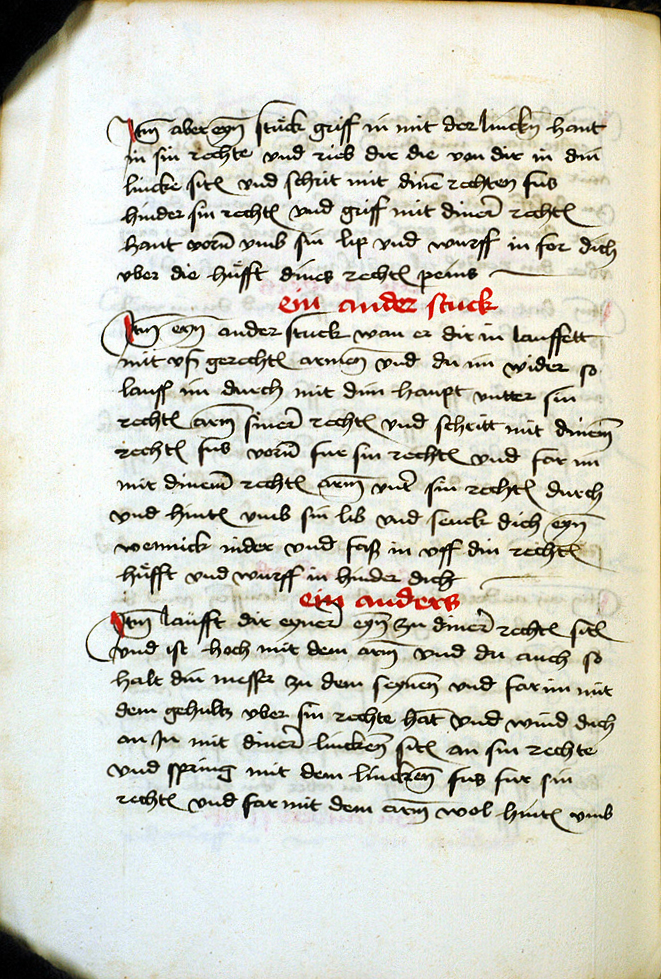 Itm aber eyn stuck griff in mit der linckn hant
in sin rechte vnd rieb dir die von dir in din
lincke sitē vnd schrit mit dinē rechten fus
hinder sin rechtē vnd griff mit dinerr rechtē
hant vorn vmb sin lip vnd wurff in for dich
vber die hüfft dines rechtē peins
ein ander stuck
Itm eyn ander stuck wan er dir in lauffett
mit vff gerechtē armen vnd du im wider so
lauff im durch mit dim haupt vntter sin
rechtē arm siner rechtē vnd schritt mit dinem
rechtē fus vorn fur sin rechtē vnd far im
mit dinem rechtē arm vnt sin rechtē durch
vnd hintē vmb sin lib vnd senck dich eyn
wennick nider vnd fass in vff din rechtē
hüfft vnd wurff in hinder dich
ein anders
Itm läufft dir eyner eyn zu diner rechtē sitē
vnd ist hoch mit dem arm vnd du auch so
halt din messer zu dem seynen vnd far im mit
dem gehultz vber sin rechte hat vnd wind dich
an in mit diner lincken sitē an sin rechte
vnd spring mit dem lincken fus fur sin
rechtē vnd far mit dem arm wol hintē vmb